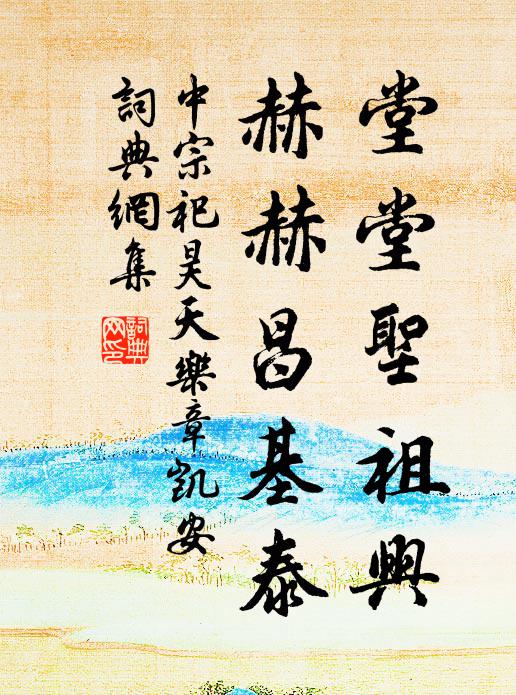 堂堂聖祖興
赫赫昌基泰
中宗祀昊天樂章凱安
詞典網集
詞典网印